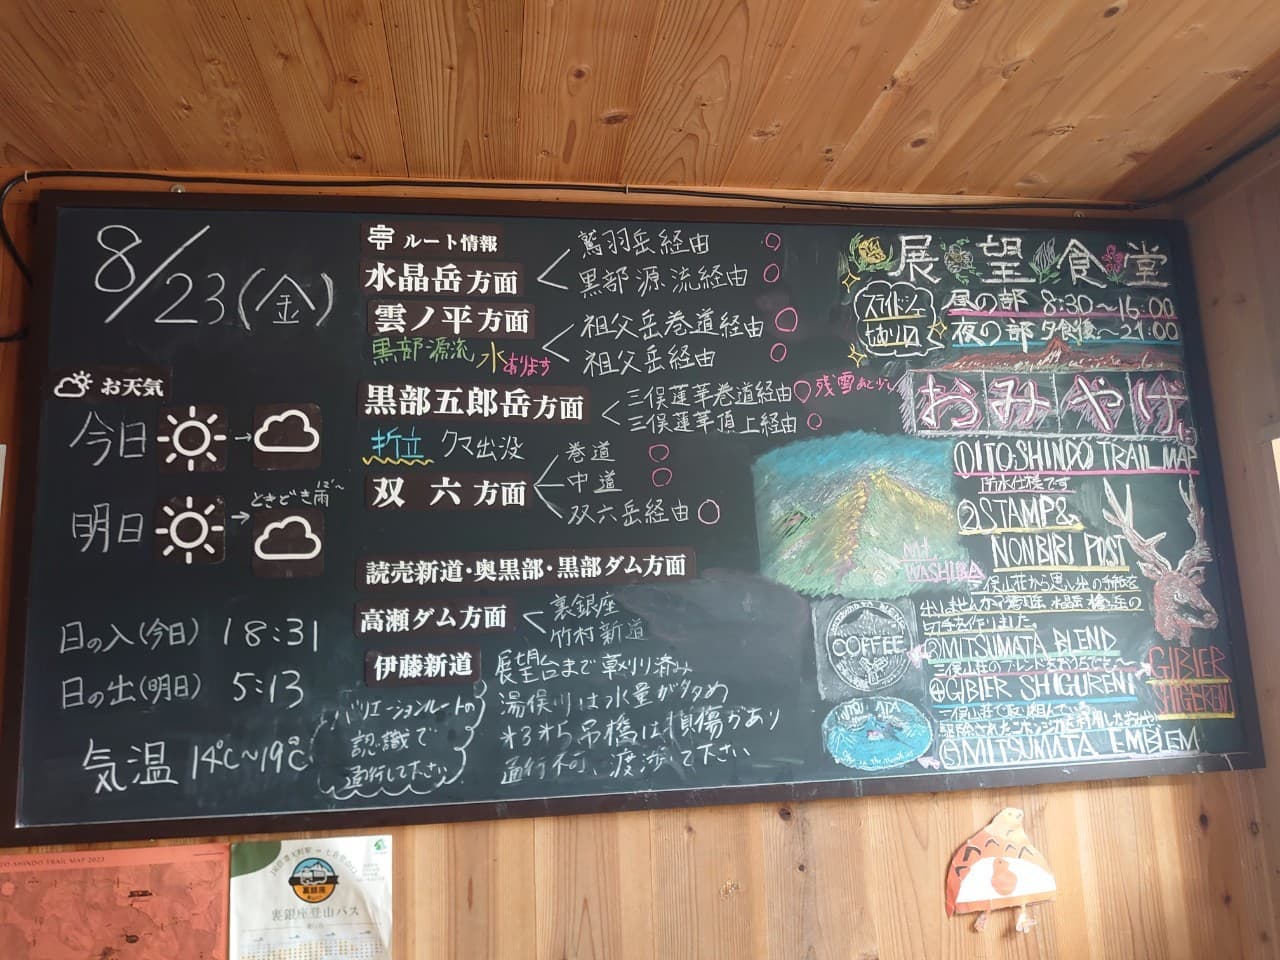 8/23(金)
お天気
今日 →
明日 → ときどき雨
日の入(今日) 18:31
日の出(明日) 5:13
気温 14℃~19℃
ルート情報
水晶岳方面
鷲羽岳経由 ○
黒部源流経由 ○
雲ノ平方面
黒部源流 水あります
祖父岳巻道経由 ○
祖父岳経由 ○
黒部五郎岳方面
三俣蓮華巻道経由○残雪あと少し
三俣蓮華頂上経由 ○
折立 クマ出没
双六方面
巻道 ○
中道 ○
双六岳経由 ○
読売新道・奥黒部・黒部ダム方面
高瀬ダム方面
裏銀座
竹村新道
伊藤新道 展望台まで草刈り済み
湯俣川は水量が多め
吊橋は損傷があり
通行不可、渡渉して下さい
バリエーションルートの
認識で
通行して下さい
展望食堂
スライドショー
昼の部 8:30~16:00
夜の部 夕食後~21:00
おみやげ
①ITO-SHINDO TRAIL MAP
防水仕様です
②STAMP&
NONBIRI POST
三俣山荘から思い出の手紙を
切手を作りました。
③MITSUMATA BLEND
④GIBIER SHIGURENI
三俣山荘で取り組んでいる
⑤MITSUMATA EMBLEM
GIBIER
SHIGURENI
Mt.
WASHIBA
COFFEE
ITO-SHINDO TRAIL MAP 2023
裏銀座
裏銀座登山バス